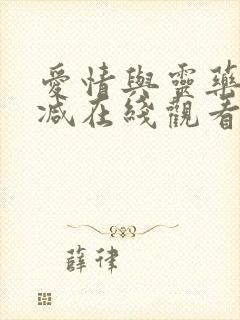 愛情與靈藥
減在綫觀看
薛律